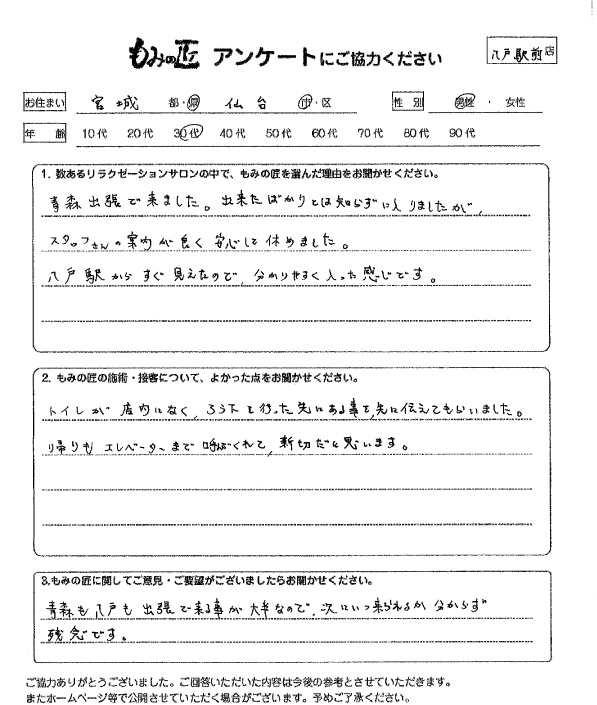 もみの匠 アンケートにご協力ください 八戸駅前店
お住まい 宮城 都・県 仙台 市・区 性別 男性・女性
年齢 10代 20代 30代 40代 50代 60代 70代 80代 90代
1. 数あるリラクゼーションサロンの中で、もみの匠を選んだ理由をお聞かせください。
青森出張で来ました。出来たばかりとは知らずに入りましたが、
スタッフさんの案内が良く安心して休めました。
八戸駅からすぐ見えたので、分かりやすく入った感じです。
2. もみの匠の施術・接客について、よかった点をお聞かせください。
トイレが店内になく、ろう下を行った先にある事を先に伝えてもらいました。
帰りもエレベーターまで呼んでくれて、新切だと思います。
3.もみの匠に関してご意見・ご要望がございましたらお聞かせください。
青森も八戸も出張で来る事が大半なので、次にいつ来られるか分からず
残念です。
ご協力ありがとうございました。ご回答いただいた内容は今後の参考とさせていただきます。
またホームページ等で公開させていただく場合がございます。予めご了承ください。